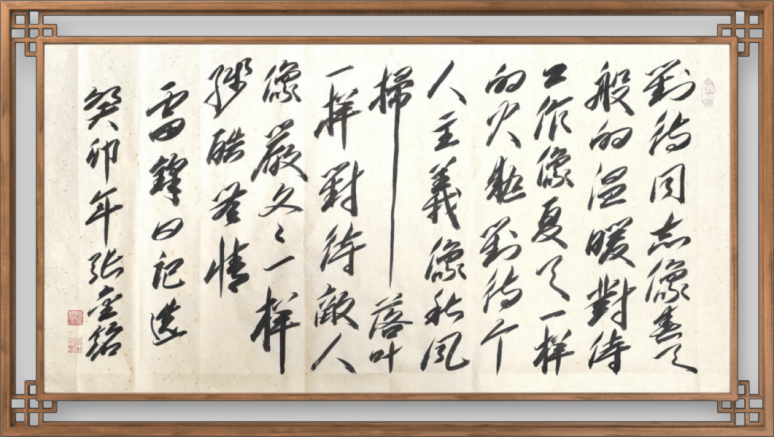 對待同志像春天
般的温暖對待
工作像夏天一样
的火热對待个
人主義像秋风
掃落叶
一样對待敵人
像嚴冬一样
残酷無情
雷鋒日記選
癸卯年张金銘